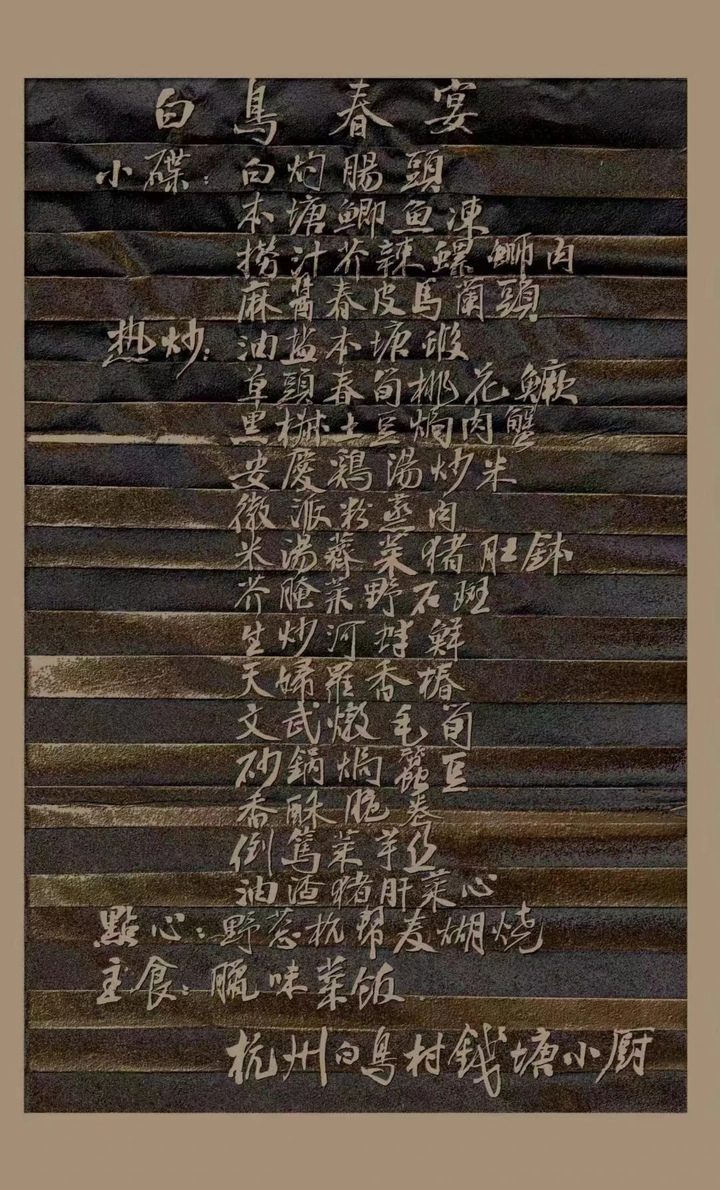 白鳥春宴
小碟：白灼腸頭
本塘鯽魚凍
撈汁芥辣螺螄肉
麻醬春皮馬蘭頭
热炒：油盐本塘蝦
草頭春筍桃花鱖
黑椒土豆焗肉蟹
安慶鷄湯炒米
徽派粉蒸肉
米湯薺菜猪肚鉢
芥腌菜野石斑
生炒河蚌鮮
天婦羅香椿
文武燉毛筍
砂鍋焗蠶豆
香酥脆卷
倒篤菜羊
油渣猪肝菜心
點心：野葱杭帮麦糊燒
主食：臘味菜飯
杭州白鳥村錢塘小厨